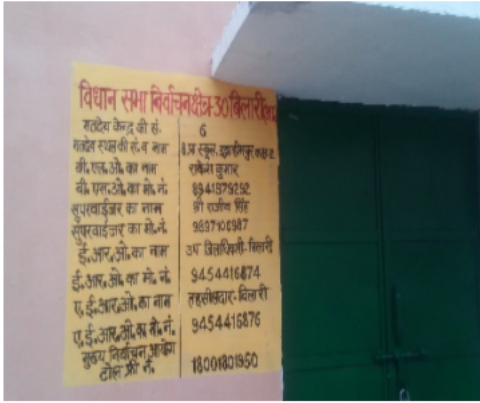 विधान सभा निर्वाचनक्षेत्र-30 बिलारी
मतदेय केन्द्र की सं. 6
मतदेय स्थल की सं. व नाम प्रा. स्कूल, इब्राहीमपुर कक्ष-2
बी. एल. ओ. का नाम राकेश कुमार
बी. एल. ओ. का मो. नं. 8941979292
सुपरवाईजर का नाम श्री राजीव सिंह
सुपरवाईजर का मो. नं. 9897106987
ई. आर. ओ. का नाम उप जिलाधिकारी-बिलारी
ई. आर. ओ. का मो. नं. 9454416874
ए. ई. आर. ओ. का नाम तहसीलदार-बिलारी
ए. ई. आर. ओ. का मो. नं. 9454416876
मुख्य निर्वाचन आयोग
टोल फ्री नं. 18001801950